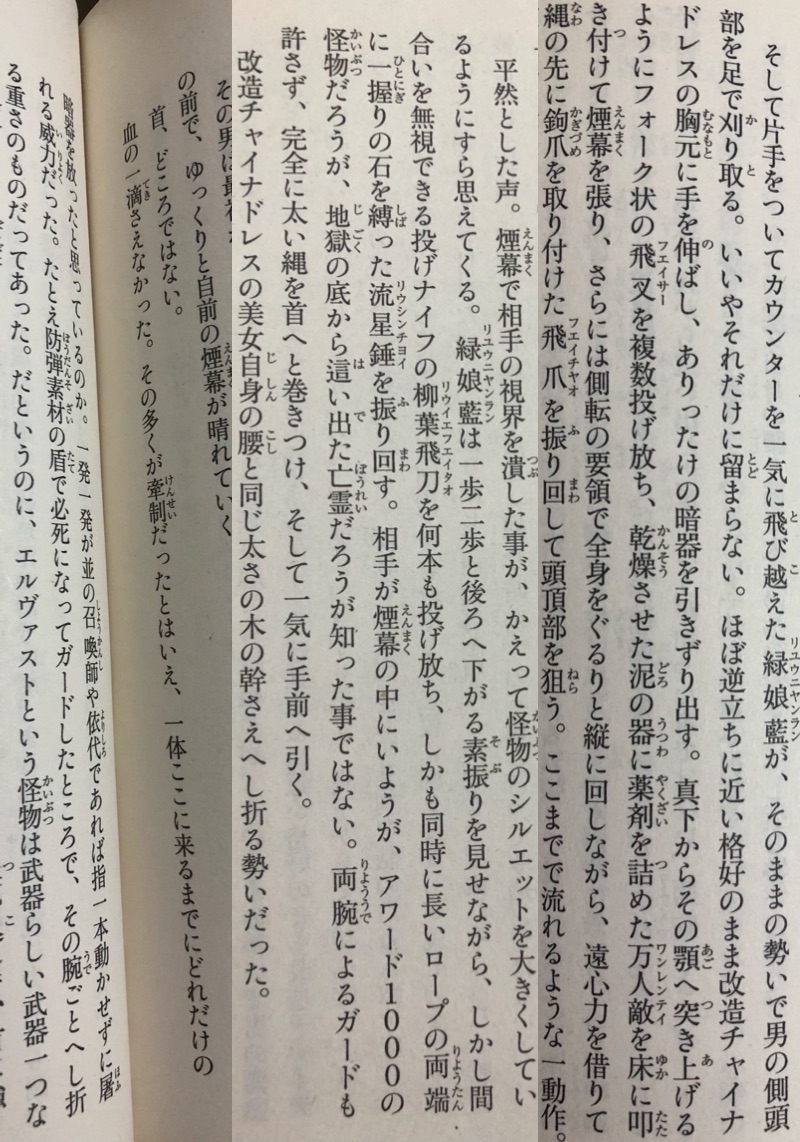 そして片手をついてカウンターを一気に飛び越えた緑娘藍が、そのままの勢いで男の側頭
部を足で刈り取る。いいやそれだけに留まらない。ほぼ逆立ちに近い格好のまま改造チャイナ
ドレスの胸元に手を伸ばし、ありったけの暗器を引きずり出す。真下からその顎へ突き上げる
ようにフォーク状の飛叉を複数投げ放ち、乾燥させた泥の器に薬剤を詰めた万人敵を床に叩
き付けて煙幕を張り、さらには側転の要領で全身をぐるりと縦に回しながら、遠心力を借りて
縄の先に鉤爪を取り付けた飛爪を振り回して頭頂部を狙う。ここまでで流れるような一動作。
平然とした声。煙幕で相手の視界を潰した事が、かえって怪物のシルエットを大きくしてい
るようにすら思えてくる。緑娘藍は一歩二歩と後ろへ下がる素振りを見せながら、しかし間
合いを無視できる投げナイフの柳葉飛刀を何本も投げ放ち、しかも同時に長いロープの両端
に一握りの石を縛った流星錘を振り回す。相手が煙幕の中にいようが、アワード1000の
怪物だろうが、地獄の底から這い出た亡霊だろうが知った事ではない。両腕によるガードも
許さず、完全に太い縄を首へと巻きつけ、そして一気に手前へ引く。
改造チャイナドレスの美女自身の腰と同じ太さの木の幹さえへし折る勢いだった。
その男は最初
の前で、ゆっくりと自前の煙幕が晴れていく
首、どころではない。
血の一滴さえなかった。その多くが牽制だったとはいえ、一体ここに来るまでにどれだけの
暗器を放ったと思っているのか。一発一発が並の召喚師や依代であれば指一本動かせずに屠
れる威力だった。たとえ防弾素材の盾で必死になってガードしたところで、その腕ごとへし折
る重さのものだってあった。だというのに、エルヴァストという怪物は武器らしい武器一つな